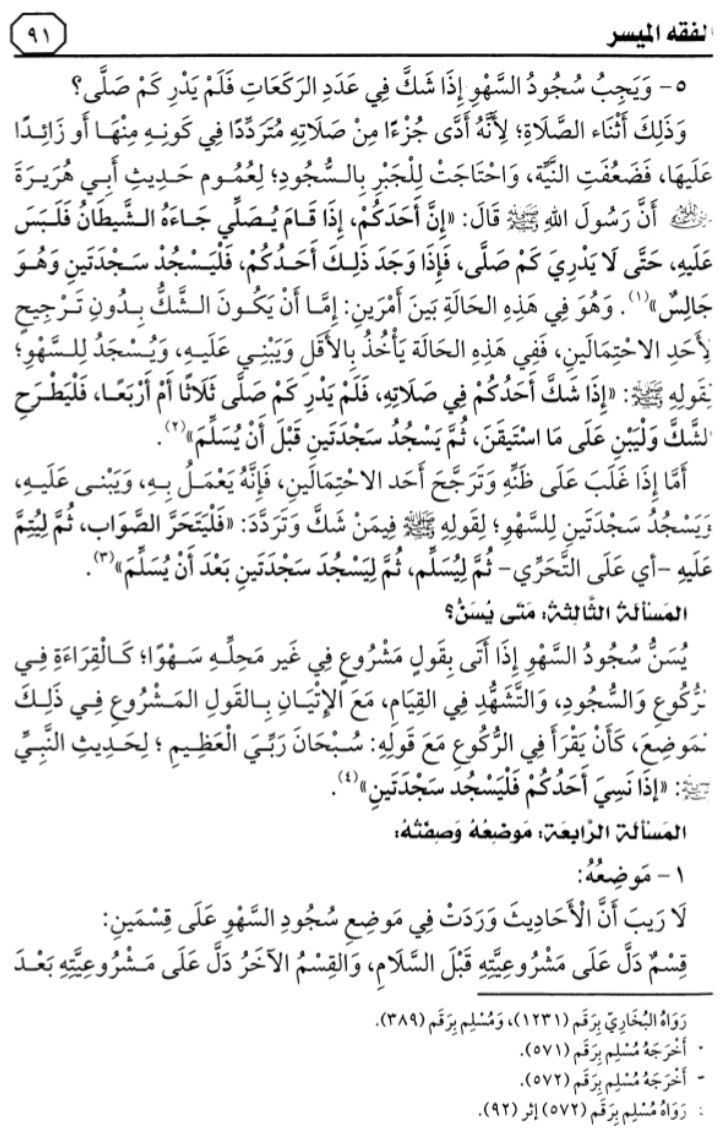 الفقه الميسر
٩١
٥- وَيَجِبُ سُجُودُ السَّهْوِ إِذَا شَكَّ فِي عَدَدِ الرَكَعَاتِ فَلَمْ يَدْرِ كَمْ صَلَّى؟
وَذَلِكَ أَثْنَاء الصَّلَاةِ؛ لِأَنَّهُ أَدَّى جُزْءًا مِنْ صَلَاتِهِ مُتَرَدِّدًا فِي كَونِهِ مِنْهَا أَو زَائِدًا
عَلَيهَا، فَضَعُفَتِ النِّيَّة، وَاحْتَاجَتْ لِلْجَبْرِ بِالسُّجُودِ؛ لِعُمُوم حَدِيثِ أَبِي هُرَيرَةَ
رضي الله عنه أَنَّ رَسُولَ اللهِ ﷺ قَالَ: «إِنَّ أَحَدَكُمْ، إِذَا قَامَ يُصَلِّي جَاءَهُ الشَّيطَانُ فَلَبَسَ
عَلَيهِ، حَتَّى لَا يَدْرِيَ كَم صَلَّى، فَإِذَا وَجَدَ ذَلِكَ أَحَدُكُمْ، فَلْيَسْجُدْ سَجْدَتَينِ وَهُوَ
جَالِسٌ»(١). وَهُوَ فِي هَذِهِ الحَالَةِ بَينَ أَمْرَينِ: إِمَّا أَنْ يَكُونَ الشَّكُّ بِدُونِ تَرْجِيحٍ
لِأَحَدِ الاحْتِمَالَينِ، فَفِي هَذِهِ الحَالَة يَأْخُذُ بِالأَقَل وَيَبْنِي عَلَيهِ، وَيُسْجَدُ لِلسَّهْوِ؛
لِقَولِهِ ﷺ: «إِذَا شَكَّ أَحَدُكُمْ فِي صَلَاتِهِ، فَلَمْ يَدْرِ كَم صَلَّى ثَلَاثًا أَمْ أَرْبَعًا، فَلْيَطْرَحِ
الشَّكَّ وَلْيَبْنِ عَلَى مَا اسْتَيقَنَ، ثُمَّ يَسْجُدُ سَجْدَتَينِ قَبْلَ أَنْ يُسَلِّمَ»(٢).
أَمَّا إِذَا غَلَبَ عَلَى ظَنِّهِ وَتَرَجَّحَ أَحَد الاحْتِمَالَينِ، فَإِنَّهُ يَعْمَلُ بِهِ، وَيَبْنى عَلَيهِ،
وَيَسْجُدُ سَجْدَتَينِ لِلسَّهْوِ؛ لِقَولِهِ ﷺ فِيمَنْ شَكَّ وَتَرَدَّدَ: «فَلْيَتَحَرَّ الصَّوَاب، ثُمَّ لِيُتِمَّ
عَلَيهِ -أي عَلَى التَّحَرِّي- ثُمَّ لِيُسَلِّم، ثُمَّ لِيَسْجُدَ سَجْدَتَينِ بَعْدَ أَنْ يُسَلِّمَ»(٣).
المَسْأَلة الثَّالِثة: مَتى يُسَنُّ؟
يُسَنُّ سُجُودُ السَّهْوِ إِذَا أَتَى بِقَولٍ مَشْرُوعٍ فِي غَير مَحلِّهِ سَهْوًا؛ كَالْقِرَاءَةِ فِي
الرُّكُوعِ وَالسُّجُودِ، وَالتَّشَهُّدِ فِي القِيَامِ، مَعَ الإِتْيَانِ بِالقَولِ المَشْرُوعِ فِي ذَلِكَ
المَوضِعَ، كَأَنْ يَقْرَأَ فِي الرُّكُوعِ مَعَ قَولِهِ: سُبْحَانَ رَبِّيَ الْعَظِيمِ؛ لِحَدِيثِ النَّبِيِّ
ﷺ: «إِذَا نَسِيَ أَحَدُكُمْ فَلْيَسْجُد سَجْدَتَينِ»(٤).
المَسْألة الرَّابِعَة: مَوضِعُهُ وَصِفَتُهُ:
١- مَوضِعُهُ:
لَا رَيبَ أَنَّ الْأَحَادِيثَ وَرَدَتْ فِي مَوضِعِ سُجُودِ السَّهْوِ عَلَى قِسْمَينِ:
قِسْمٌ دَلَّ عَلَى مَشْرُوعِيَّتِهِ قَبْلَ السَّلَامِ، وَالقِسْمُ الآخَرُ دَلَّ عَلَى مَشْرُوعِيَّتِهِ بَعْدَ
رَوَاهُ البُخَارِيّ بِرَقم (١٢٣١)، وَمُسْلِم بِرَقم (٣٨٩).
أَخْرَجَهُ مُسْلِم بِرَقم (٥٧١).
أَخْرَجَهُ مُسْلِم بِرَقم (٥٧٢).
رَوَاهُ مُسْلِم بِرَقم (٥٧٢) إثر (٩٢).